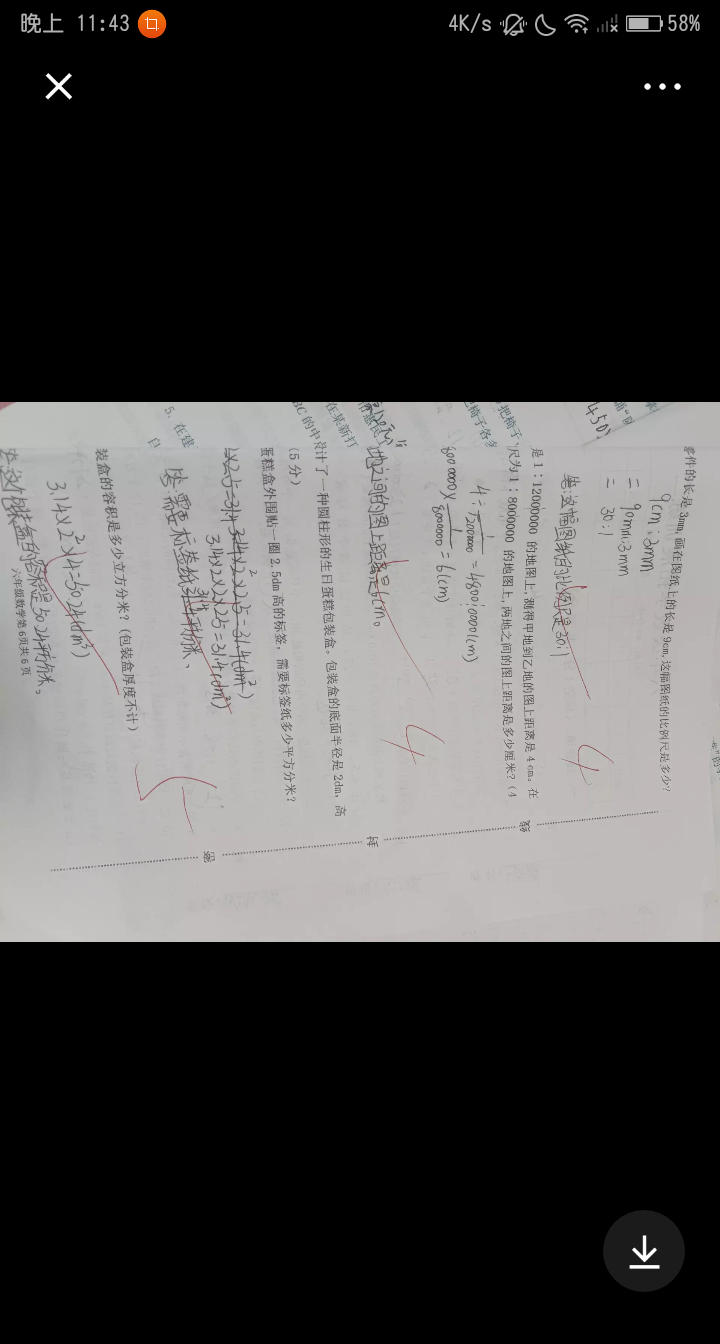 晚上 11:43
4K/s
58%
450
零件的长是 3mm, 画在图纸上的长是 9cm, 这幅图纸的比例尺是多少?
9cm:3mm
= 90mm:3mm
= 30:1
答:这幅图纸的比例尺是30:1
4
是 1:12000000 的地图上, 测得甲地到乙地的图上距离是 4 cm。在
尺为 1:8000000 的地图上, 两地之间的图上距离是多少厘米? (4
4÷1/12000000=48000000(cm)
48000000×1/8000000=6(cm)
地之间的图上距离是6cm。
4
BC 的中
设计了一种圆柱形的生日蛋糕包装盒。包装盒的底面半径是 2dm, 高
(5 分)
蛋糕盒外围贴一圈 2.5dm 高的标签, 需要标签纸多少平方分米?
3.14×2×2×2.5=31.4(dm²)
3.14×2×2×2.5=31.4(dm²)
答:需要标签纸31.4平方分米、
5. 在建
装盒的容积是多少立方分米? (包装盒厚度不计)
3.14×2²×4=50.24(dm³)
5
六年级数学第 6 页共 6 页
密
封
线